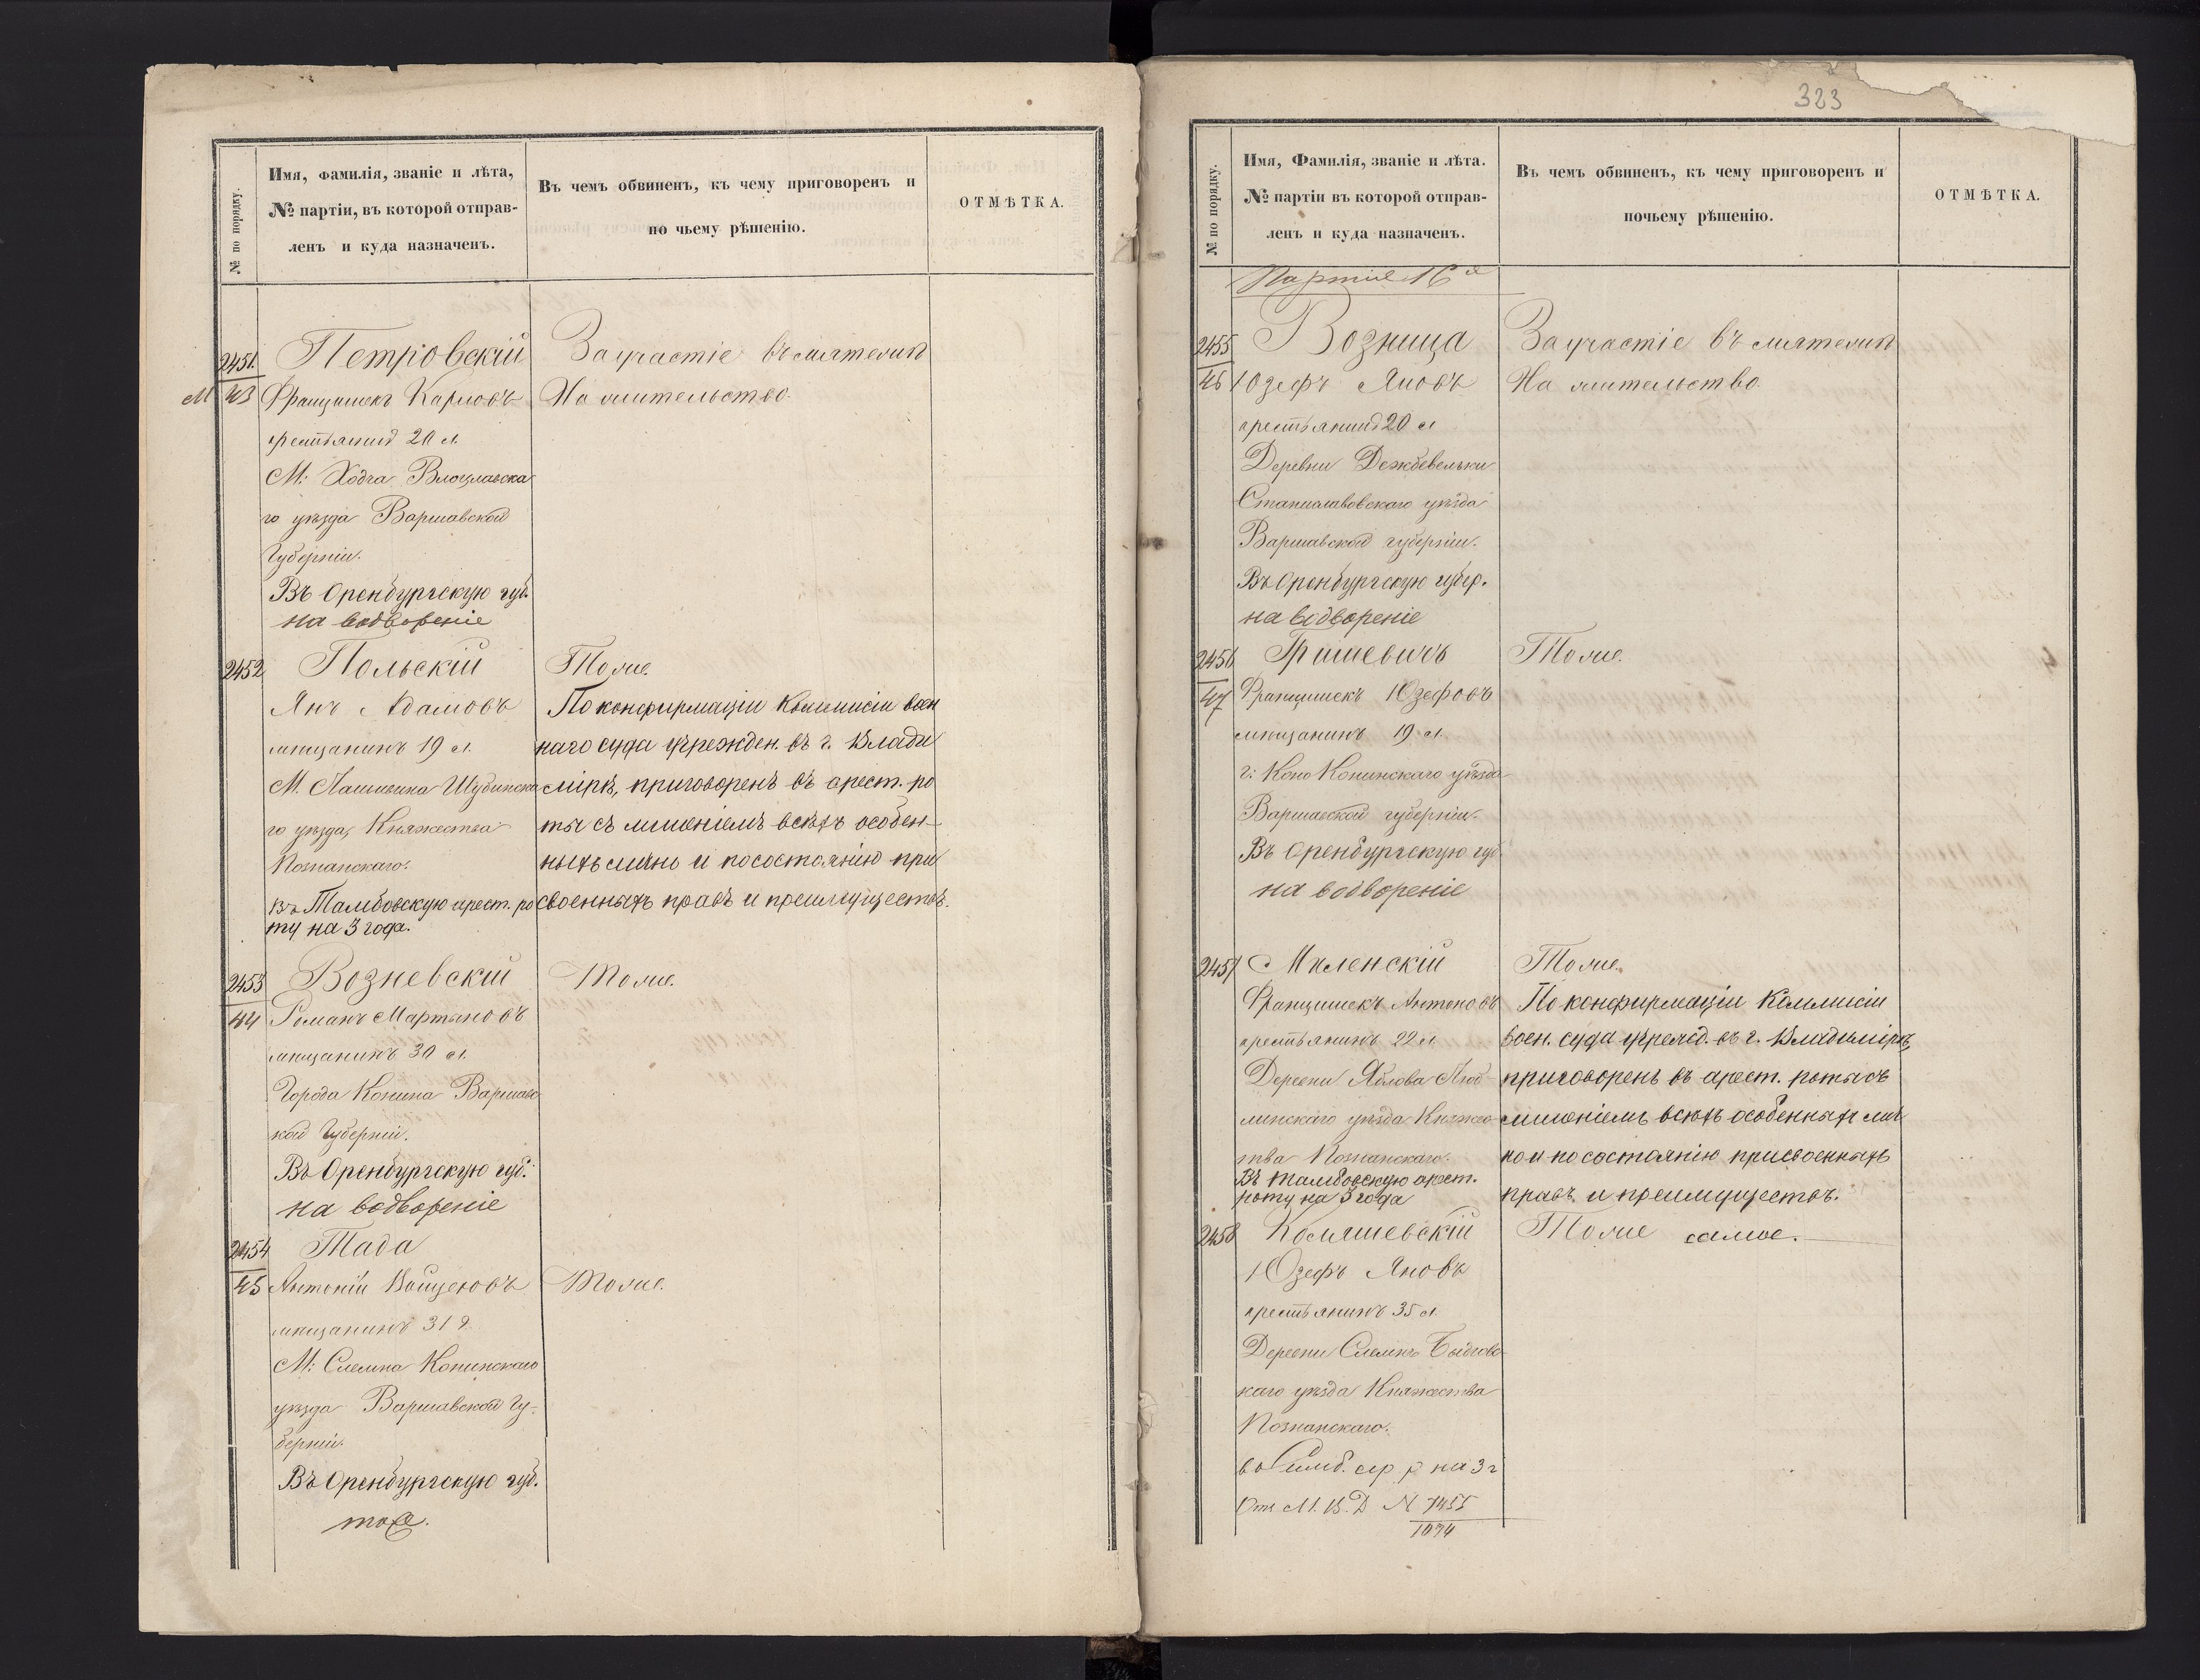 № по порядку.
Имя, фамилія, званіе и лѣта,
№ партіи, въ которой отправ-
ленъ и куда назначенъ.
Въ чемъ обвиненъ, къ чему приговоренъ и
по чьему рѣшенію.
ОТМѢТКА.
2451.
43
Петровскій
Францишекъ Карловъ
крестьянинъ 20 л.
М: Ходча Влоцлавска
го уѣзда Варшавской
Губерніи.
Въ Оренбургскую губ.
на водвореніе
За участіе въ мятежѣ
На жительство.
2452
Польскій
Янъ Адамовъ
мѣщанинъ 19 л.
М. Шубинска
го уѣзда, Княжества
Познанскаго.
Въ Тамбовскую арест. ро
ту на 3 года.
Тоже.
По конфирмаціи Коммисіи воен
наго суда учрежден. въ г. Влади
мірѣ, приговоренъ въ арест. ро
ты съ лишеніемъ всѣхъ особен-
ныхъ лично и по состоянію при
своенныхъ правъ и преимуществъ.
2453
44
Возневскій
Романъ Мартыновъ
мѣщанинъ 30 л.
Города Конина Варшавс
кой Губерніи.
Въ Оренбургскую губ.
на водвореніе
Тоже.
2454
45
Тада
Антоній Войцеховъ
мѣщанинъ 31 л.
М: Слесина Конинскаго
уѣзда Варшавской Гу-
берніи.
Въ Оренбургскую губ.
тоже.
Тоже.
323
№ по порядку.
Имя, Фамилія, званіе и лѣта.
№ партіи въ которой отправ-
ленъ и куда назначенъ.
Въ чемъ обвиненъ, къ чему приговоренъ и
почьему рѣшенію.
ОТМѢТКА.
Партіе 16й
2455
46
Возница
Юзефъ Яновъ
крестьянинъ 20 л
Деревни
Станиславовскаго уѣзда
Варшавской губерніи.
Въ Оренбургскую губер.
на водвореніе
За участіе въ мятежѣ
На жительство.
2456
47
Гришевичъ
Францишекъ Юзефовъ
мѣщанинъ 19 л.
г: Коло Конинскаго уѣзда
Варшавской губерніи.
Въ Оренбургскую губ.
на водвореніе
Тоже.
2457
Миленскій
Францишекъ Антоновъ
крестьянинъ 22 л
Деревни
уѣзда Княжес
тва Познанскаго.
Въ Тамбовскую арест.
роту на 3 года
Тоже.
По конфирмаціи Коммисіи
воен. суда учрежд. въ г. Владимірѣ,
приговоренъ въ арест. роты съ
лишеніемъ всѣхъ особенныхъ лич
но и по состоянію присвоенныхъ
правъ и преимуществъ.
2458
Комяшевскій
Юзефъ Яновъ
крестьянинъ 35 л.
Деревни
каго уѣзда Княжества
Познанскаго.
въ Симб. ар р на 3 г
Отн М. В. Д №
1074
Тоже самое.